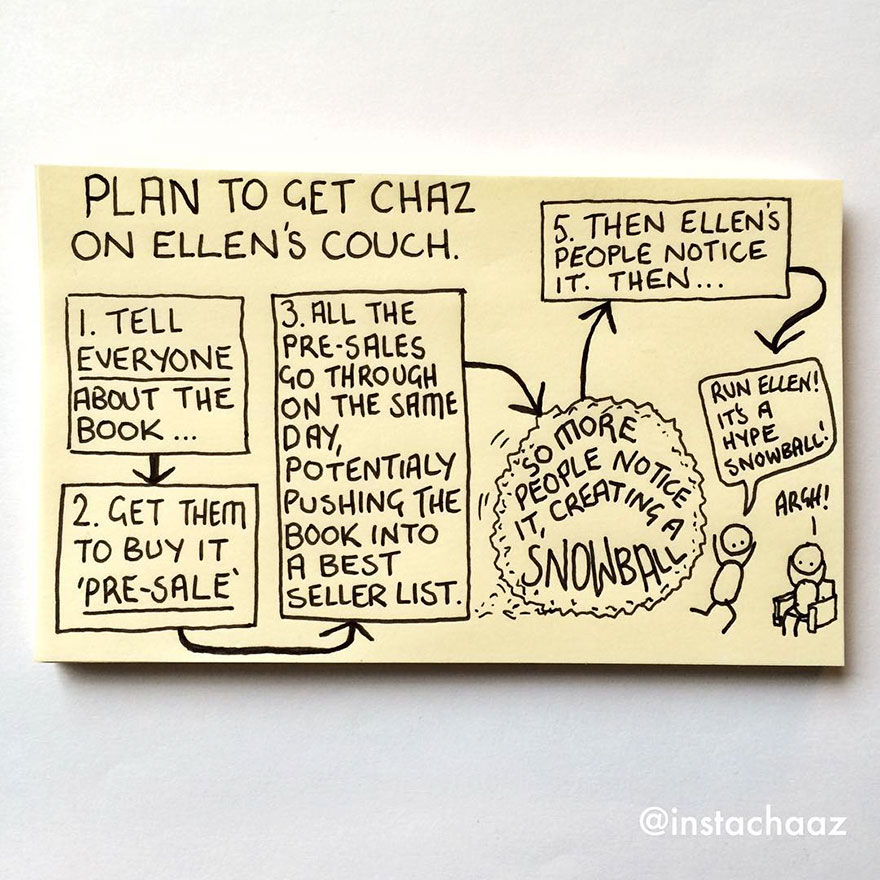 PLAN TO GET CHAZ
ON ELLEN'S COUCH.
1. TELL
EVERYONE
ABOUT THE
BOOK...
2. GET THEM
TO BUY IT
'PRE-SALE'
3. ALL THE
PRE-SALES
GO THROUGH
ON THE SAME
DAY,
POTENTIALY
PUSHING THE
BOOK INTO
A BEST
SELLER LIST.
SO MORE
PEOPLE NOTICE
IT, CREATING A
SNOWBALL
5. THEN ELLEN'S
PEOPLE NOTICE
IT. THEN...
RUN ELLEN!
IT'S A
HYPE
SNOWBALL!
ARGH!
@instachaaz